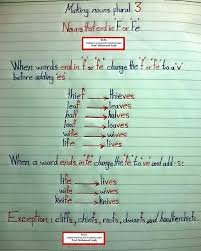 Making nouns plural 3
Nouns that end in F or Fe
When words end in "f" or "fe" change the "f" or "fe" to a "v"
before adding "es".
thief → thieves
leaf → leaves
half → halves
loaf → loaves
life → lives
wife → wives
When a word ends in "fe" change the "fe" to "ve" and add -s:
life → lives
wife → wives
Knife → Knives
Exception: cliffs, chiefs, roofs, dwarfs and handkerchiefs.